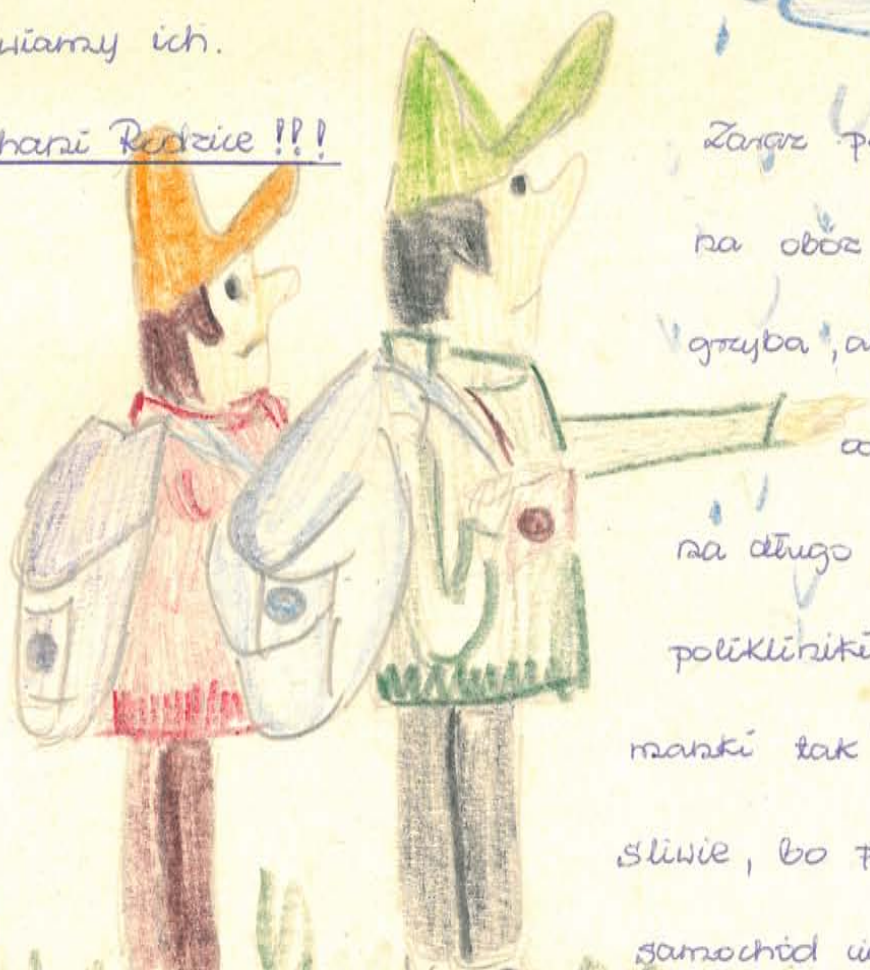 wiamy ich.
hani Rodzice !!!
Zaraz p
na obóz
grzyba, a
na długo
polikliniki
manki tak
śliwie, bo
samochód